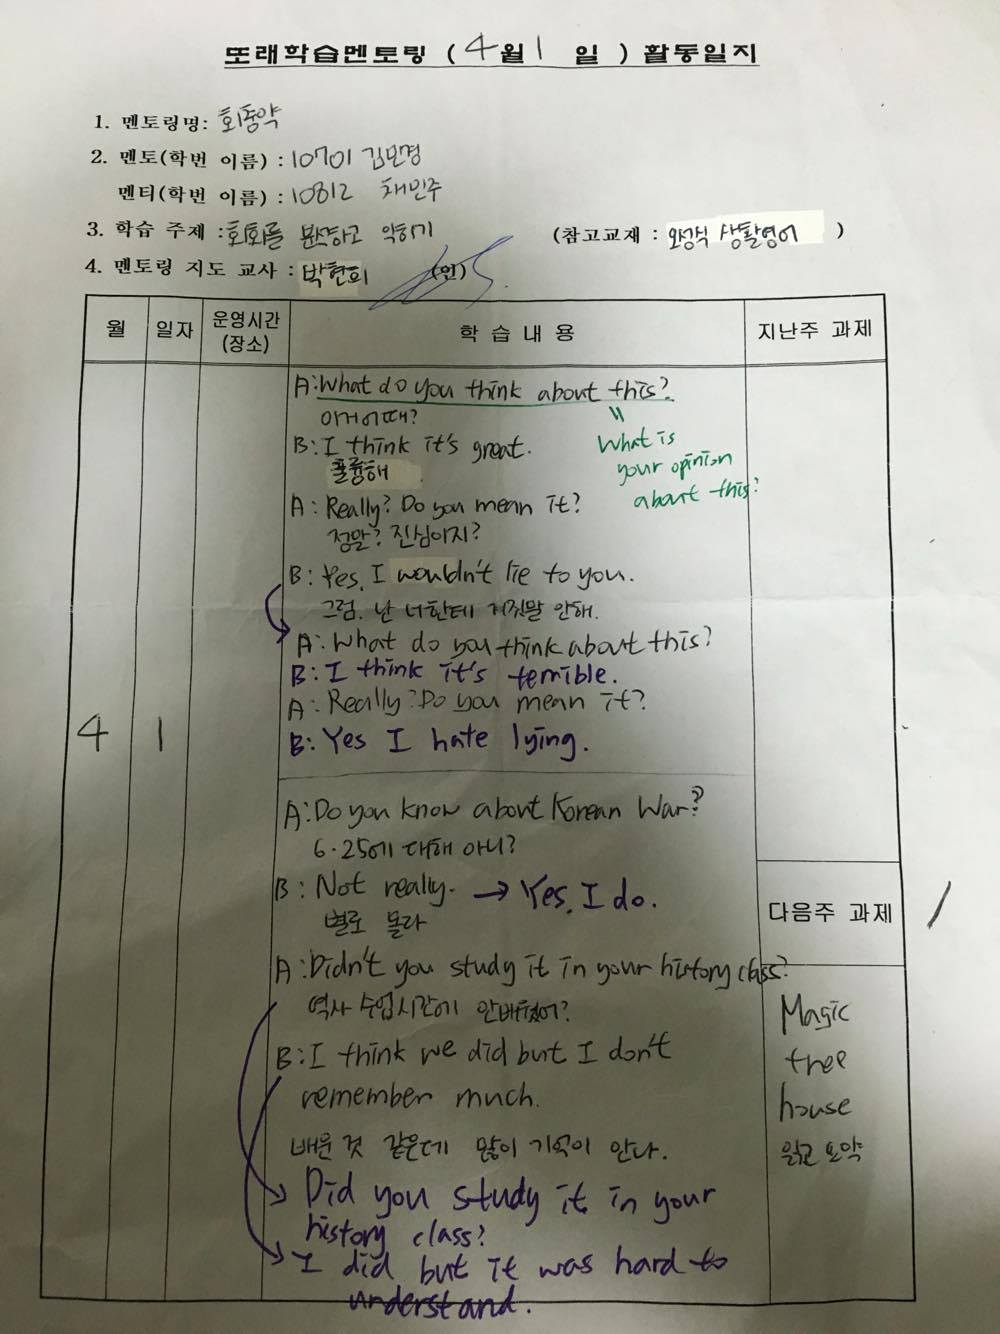 또래학습멘토링 ( 4월 1 일 ) 활동일지
1. 멘토링명: 회중약
2. 멘토(학번 이름) : 10701 김민경
멘티(학번 이름) : 10812 채민주
3. 학습 주제 : 회화를 분석하고 익히기 (참고교재 : 오성식 생활영어 )
4. 멘토링 지도 교사 : 박현희 (인)
월 일자 운영시간 (장소) 학 습 내 용 지난주 과제
4 1
A: What do you think about this?
이거 어때?
B: I think it's great.
훌륭해
= What is
your opinion
about this?
A: Really? Do you mean it?
정말? 진심이지?
B: Yes, I wouldn't lie to you.
그럼. 난 너한테 거짓말 안해.
A: What do you think about this?
B: I think it's terrible.
A: Really? Do you mean it?
B: Yes I hate lying.
A: Do you know about Korean War?
6·25에 대해 아니?
B: Not really. → Yes, I do.
별로 몰라
A: Didn't you study it in your history class?
역사 수업시간에 안배웠어?
B: I think we did but I don't
remember much.
배운 것 같은데 많이 기억이 안나.
→ Did you study it in your
history class?
→ I did but it was hard to
understand.
다음주 과제
Magic
tree
house
읽고 요약